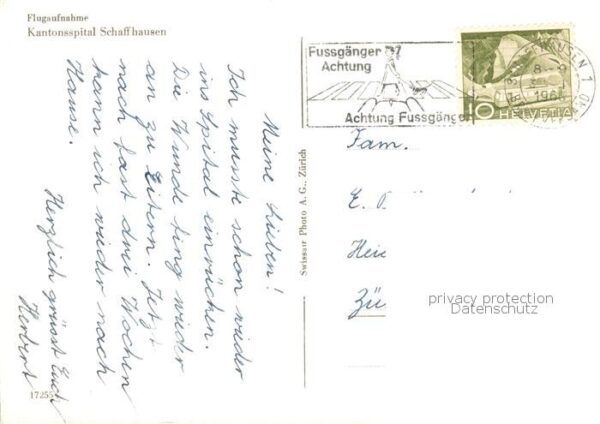 Flugaufnahme
Kantonsspital Schaffhausen
Meine Lieben!
Ich musste schon wieder
ins Spital einrücken.
Die Wunde fing wieder
an zu Eitern. Jetzt
nach fast drei Wochen
kann ich wieder nach
Hause.
Herzlich grüsst Euch
Herbert
17255
Swissair Photo A. G., Zürich
Fussgänger
Achtung
Achtung Fussgänger
HAUSEN 1
8
196
10 HELVETIA
Fam.
E.
Hei
Zü
privacy protection
Datenschutz